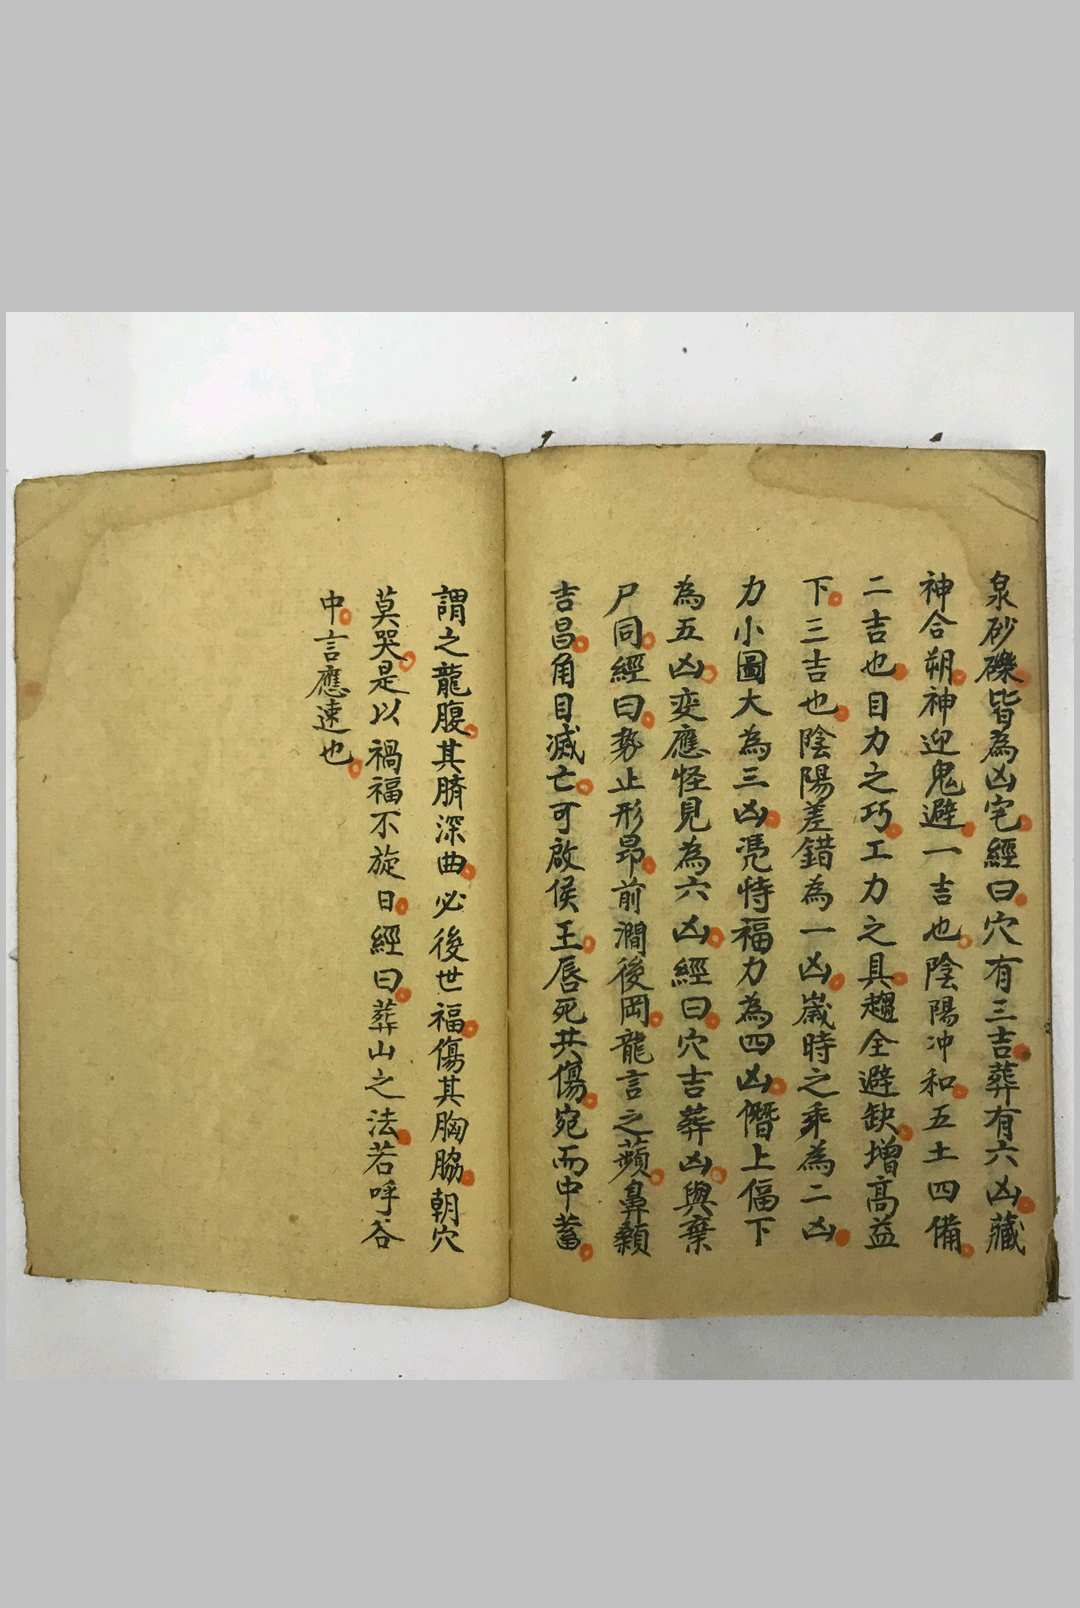 泉砂礫皆為凶宅經曰穴有三吉葬有六凶藏
神合朔神迎鬼避一吉也陰陽冲和五土四備
二吉也目力之巧工力之具趨全避缺增高益
下三吉也陰陽差錯為一凶嵗時之乖為二凶
力小圖大為三凶凴恃福力為四凶僭上偪下
為五凶变應怪見為六凶經曰穴吉葬凶與棄
尸同經曰勢止形昂前澗後岡龍言之蘋鼻顙
吉昌角目滅亡可啟侯王唇死共傷宛而中蓄
謂之龍腹其臍深曲必後世福傷其胸脇朝穴
莫哭是以禍福不旋日經曰葬山之法若呼谷
中言應速也